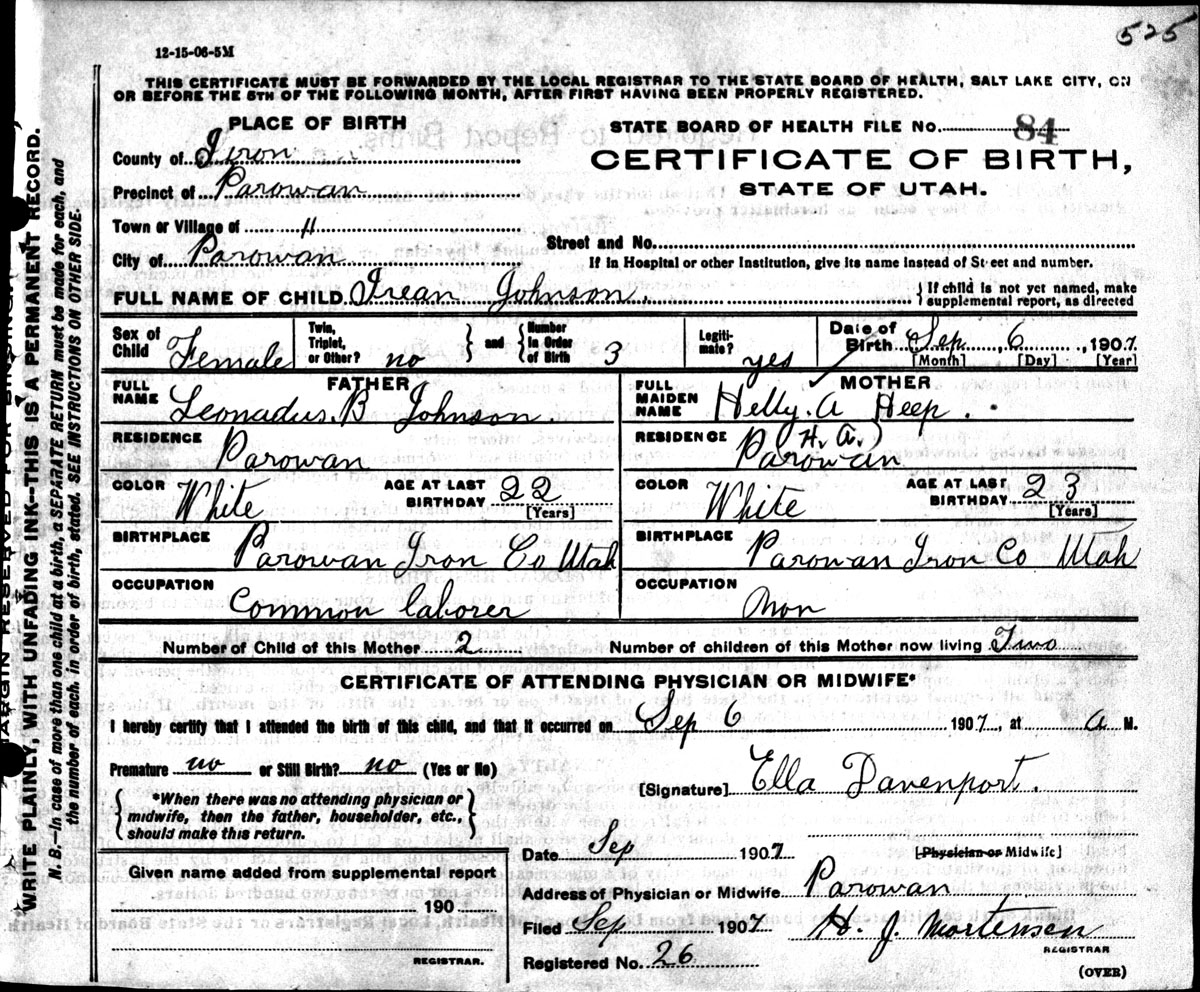 525
12-15-06-5M
THIS CERTIFICATE MUST BE FORWARDED BY THE LOCAL REGISTRAR TO THE STATE BOARD OF HEALTH, SALT LAKE CITY, ON
OR BEFORE THE 5TH OF THE FOLLOWING MONTH, AFTER FIRST HAVING BEEN PROPERLY REGISTERED.
PLACE OF BIRTH
STATE BOARD OF HEALTH FILE No. 84
County of Iron
CERTIFICATE OF BIRTH,
Precinct of Parowan
STATE OF UTAH.
Town or Village of "
Street and No.
City of Parowan
If in Hospital or other Institution, give its name instead of Street and number.
FULL NAME OF CHILD Irean Johnson. { If child is not yet named, make
supplemental report, as directed
Sex of Child Female
Twin, Triplet, or Other? no } and { Number in Order of Birth 3
Legiti-mate? yes
Date of Birth Sep 6, 1907.
[Month] [Day] [Year]
FATHER
FULL NAME Leonadus. B Johnson.
MOTHER
FULL MAIDEN NAME Helly. A Heep.
(H. A.)
RESIDENCE Parowan
RESIDENCE Parowan
COLOR White AGE AT LAST BIRTHDAY 22 [Years]
COLOR White AGE AT LAST BIRTHDAY 23 [Years]
BIRTHPLACE Parowan Iron Co Utah
BIRTHPLACE Parowan Iron Co Utah
OCCUPATION Common laborer
OCCUPATION Non
Number of Child of this Mother 2 Number of children of this Mother now living Two
CERTIFICATE OF ATTENDING PHYSICIAN OR MIDWIFE*
I hereby certify that I attended the birth of this child, and that it occurred on Sep 6 1907, at a M.
Premature no or Still Birth? no (Yes or No)
[Signature] Ella Davenport.
{ *When there was no attending physician or
midwife, then the father, householder, etc.,
should make this return. }
Date Sep 1907 [Physician or Midwife]
Given name added from supplemental report
190
REGISTRAR.
Address of Physician or Midwife Parowan
Filed Sep 1907 H. J. Mortensen
REGISTRAR
Registered No. 26
(OVER)
MARGIN RESERVED FOR BINDING.
WRITE PLAINLY, WITH UNFADING INK--THIS IS A PERMANENT RECORD.
N. B.--In case of more than one child at a birth, a SEPARATE RETURN must be made for each, and
the number of each, in order of birth, stated. SEE INSTRUCTIONS ON OTHER SIDE.